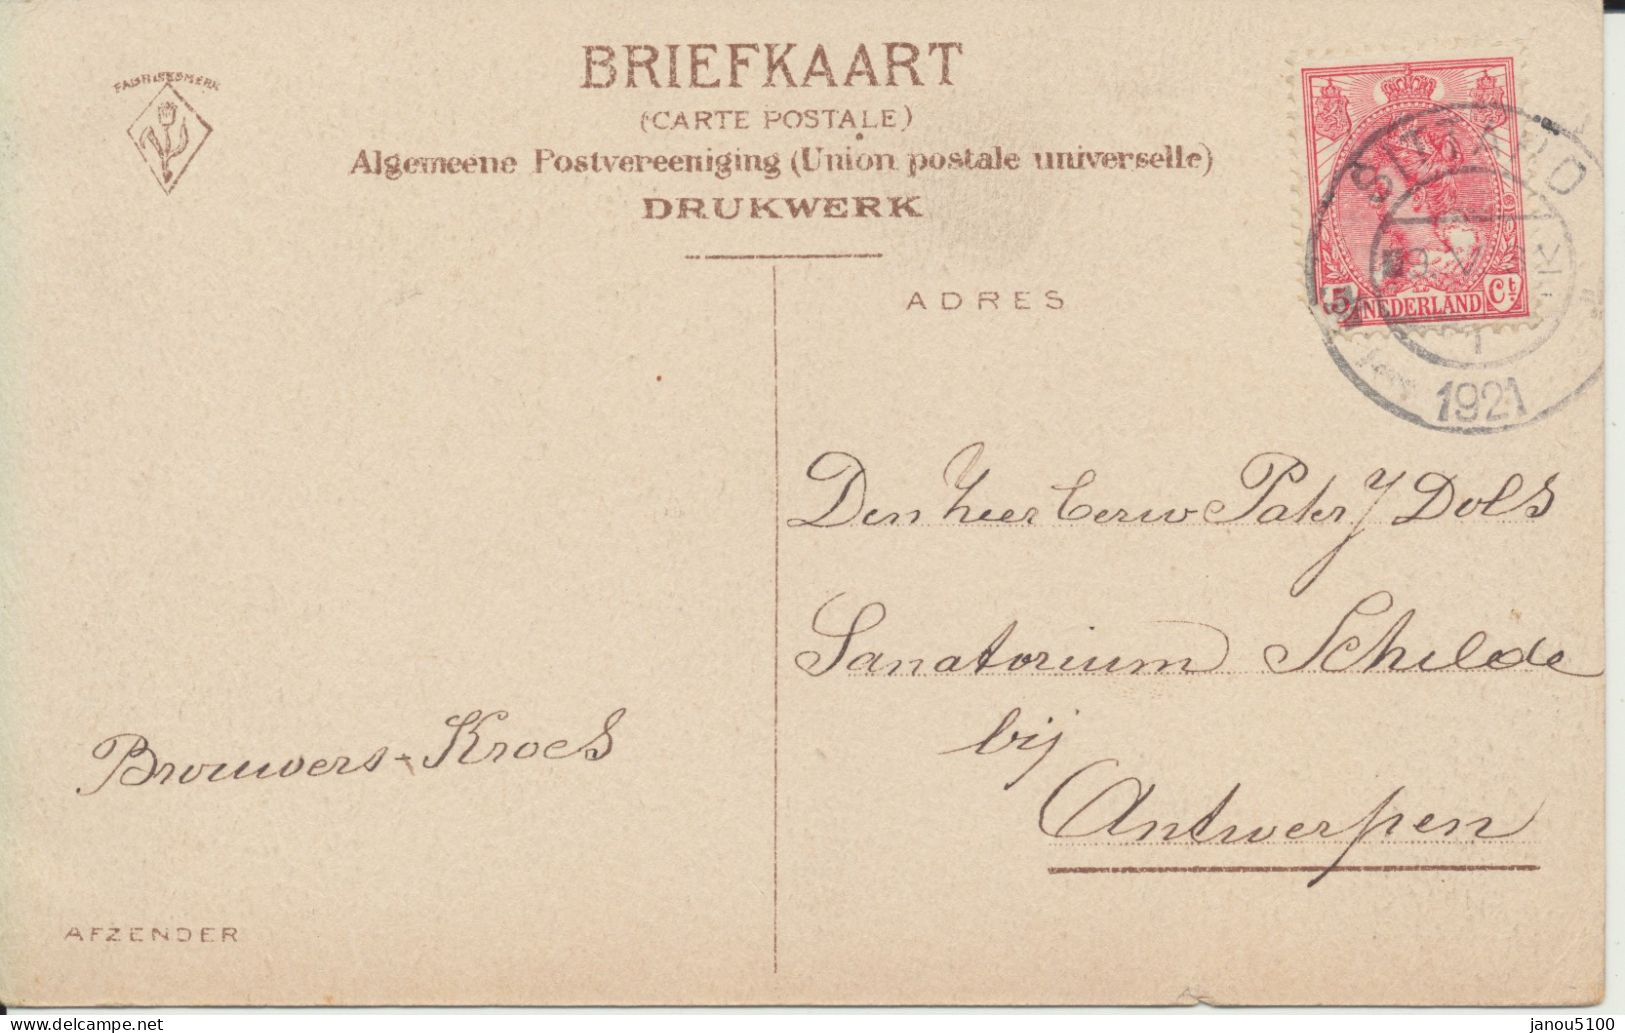 FABRIEKSMERK
BRIEFKAART
(CARTE POSTALE)
Algemeene Postvereeniging (Union postale universelle)
DRUKWERK
ADRES
SITTARD
1
1921
5 NEDERLAND Ct
Den heer Eerw Pater J Dols
Sanatorium Schilde
bij
Antwerpen
Brouwers-Kroes
AFZENDER
delcampe.net
janou5100